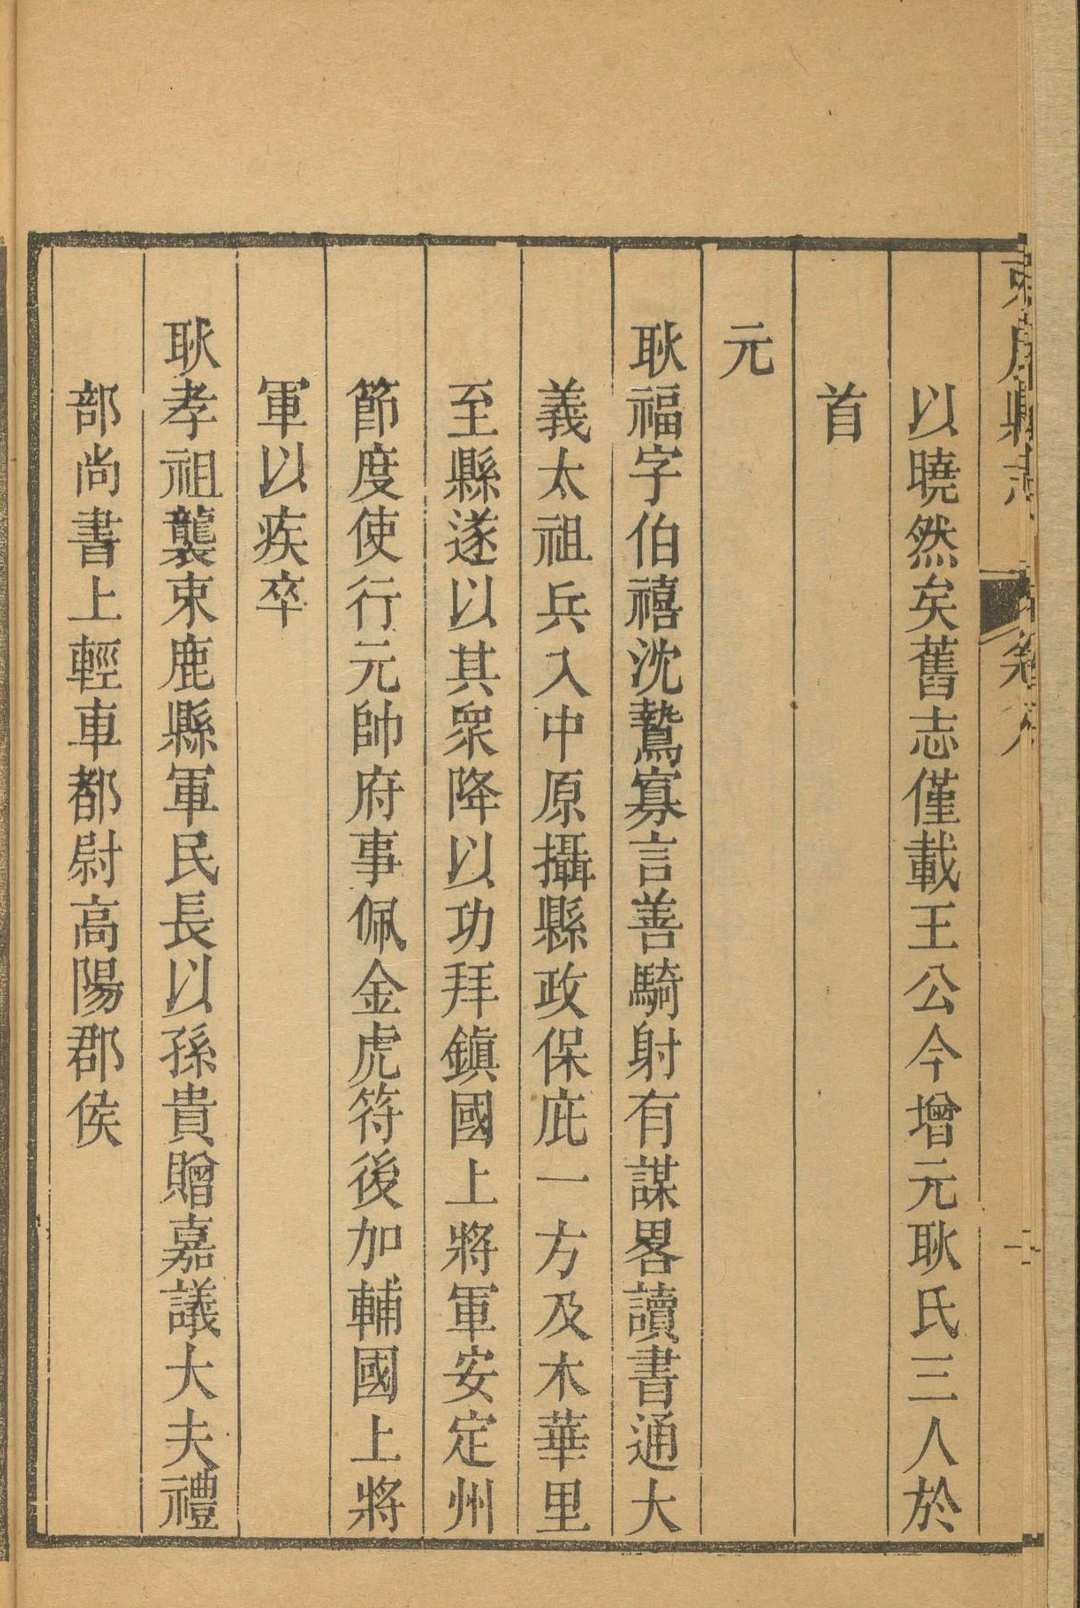 束鹿縣志 卷八 二
以曉然矣舊志僅載王公今增元耿氏三人於
首
元
耿福字伯禧沈鷙寡言善騎射有謀畧讀書通大
義太祖兵入中原攝縣政保庇一方及木華里
至縣遂以其衆降以功拜鎭國上將軍安定州
節度使行元帥府事佩金虎符後加輔國上將
軍以疾卒
耿孝祖襲束鹿縣軍民長以孫貴贈嘉議大夫禮
部尚書上輕車都尉高陽郡侯